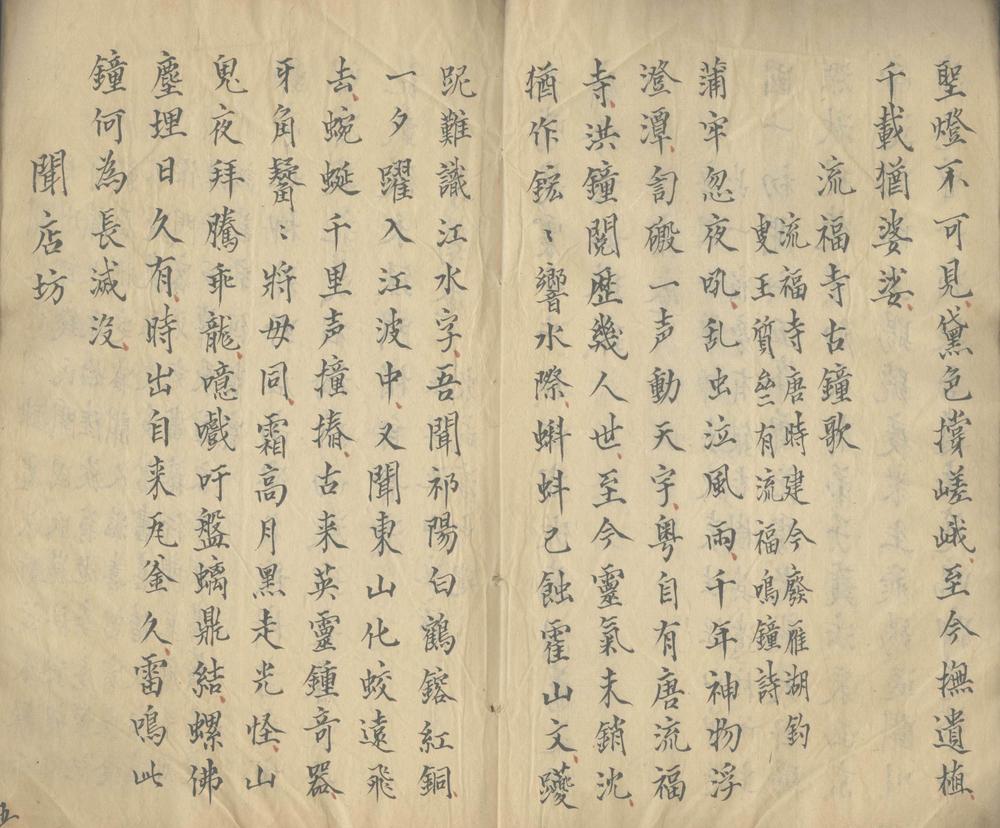 聖燈不可見黛色撐嵯峨至今撫遺植
千載猶婆娑
流福寺古鐘歌
流福寺唐時建今廢雁湖釣
叟王質釜有流福鳴鐘詩
蒲牢忽夜吼乱虫泣風雨千年神物浮
澄潭訇礮一声動天宇粵自有唐流福
寺洪鐘閱歷幾人世至今靈氣未銷沈
猶作鋐〻響水際蝌蚪已蝕霍山文躨
跜難識江水字吾聞祁陽白鶴鎔紅銅
一夕躍入江波中又聞東山化蛟遠飛
去蜿蜒千里声撞摏古来英靈鍾奇器
牙角鬡〻將毋同霜高月黑走光怪山
鬼夜拜騰乖龍噫嚱吁盤螭鼎結螺佛
塵埋日久有時出自来瓦釜久雷鳴此
鐘何為長滅沒
聞店坊
五